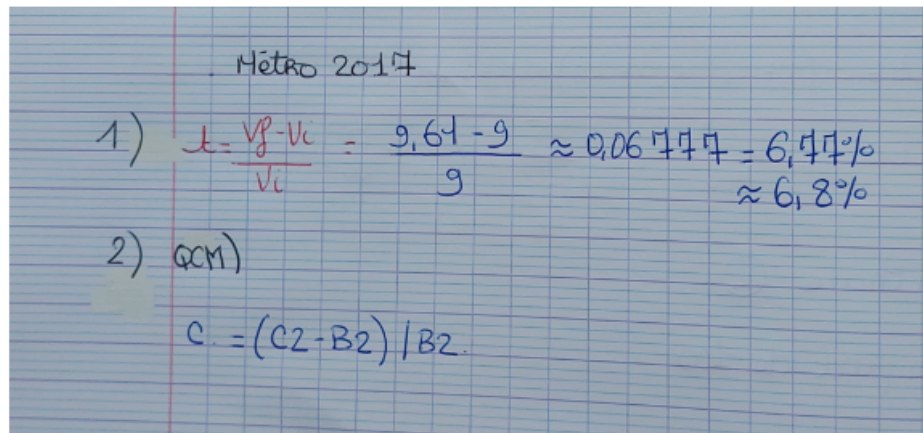 Métro 2017
1) t = (Vf - Vi) / Vi = (9,61 - 9) / 9 ≈ 0,06777 = 6,77%
≈ 6,8%
2) QCM)
C. = (C2 - B2) / B2.